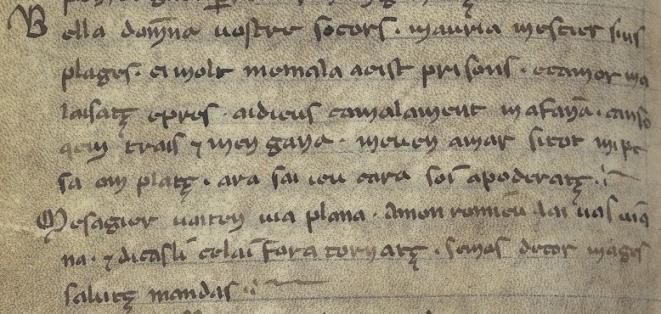 Bella domna uostre socors. mauria mestier sius
plages. ei molt memala aeist prisons. ecamor ma
laisatz epres. aidieus camalament mafana. canso
qem trais ⁊ men gana. meuen amar sitot mipe
sa om platz. ara sai ieu cara soi apoderatz.
Mesagier uaiten uia plana. Amon romieu lai uas uia
na. ⁊ dicasli celai fora tornatz. semas decor mages
salutz mandas